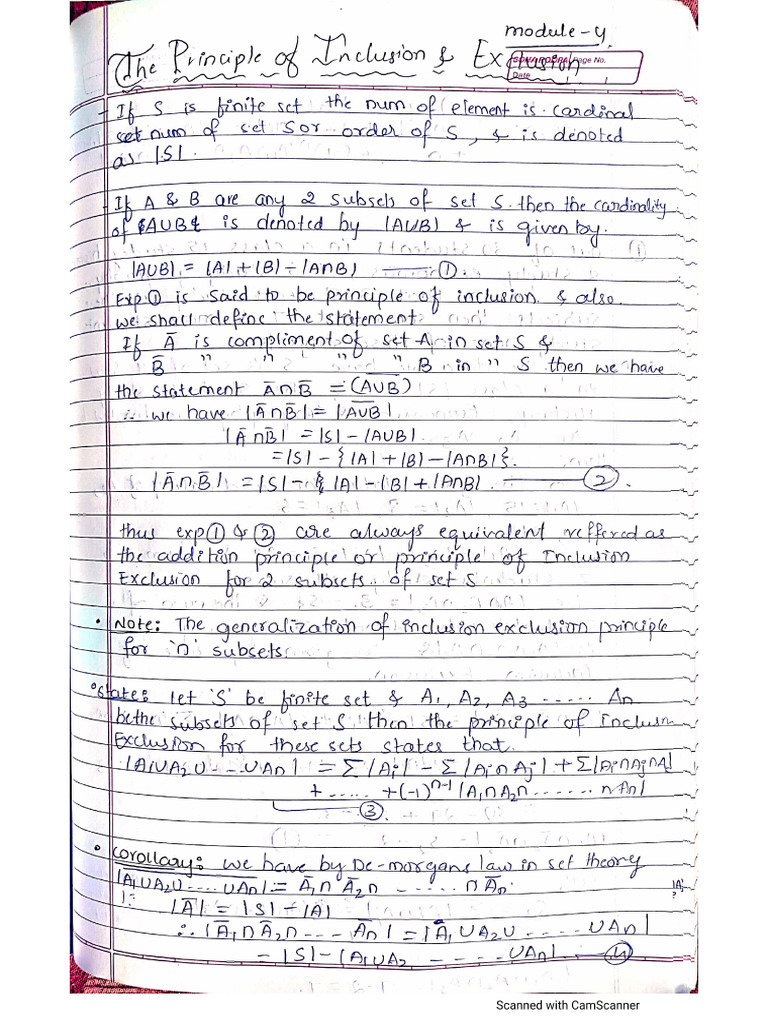 module-4
The Principle of Inclusion & Exclusion
Page No.
Date
If S is finite set the num of element is cardinal
set num of set S or order of S, & is denoted
as |S|.
If A & B are any 2 subsets of set S. then the cardinality
of AUB is denoted by |AUB| & is given by.
|AUB| = |A|+|B|-|A∩B| ——— ①
Exp ① is said to be principle of inclusion & also
we shall define the statement.
If Ā is compliment of set A in set S &
B̄ " " " " B in " S then we have
the statement Ā∩B̄ = (A̅U̅B̅)
∴ we have |Ā∩B̄| = |A̅U̅B̅|
|Ā∩B̄| = |S|-|AUB|.
= |S|-{|A|+|B|-|A∩B|}.
|Ā∩B̄| = |S|-{|A|-|B|+|A∩B|. ——— ②.
thus exp ① & ② are always equivalent reffered as
the addition principle or principle of Inclusion
Exclusion for 2 subsets of set S
• Note: The generalization of inclusion exclusion principle
for 'n' subsets.
• State: let 'S' be finite set & A1, A2, A3 ...... An
be the subsets of set S then the principle of Inclusion
Exclusion for these sets states that.
|A1UA2U...UAn| = Σ|Ai|-Σ|Ai∩Aj|+Σ|Ai∩Aj∩A|
+ ..... +(-1)ⁿ⁻¹|A1∩A2∩.......∩An|
③
• Corollary: we have by De-morgans law in set theory
|A̅1̅U̅A̅2̅U̅....U̅A̅n̅| = Ā1∩Ā2∩ - ..... ∩Ān.
|Ā| = |S|-|A|
∴ |Ā1∩Ā2∩--- Ān| = |A1UA2U....-UAn|
- |S|-|A1UA2 - - -..UAn| ——④
Scanned with CamScanner